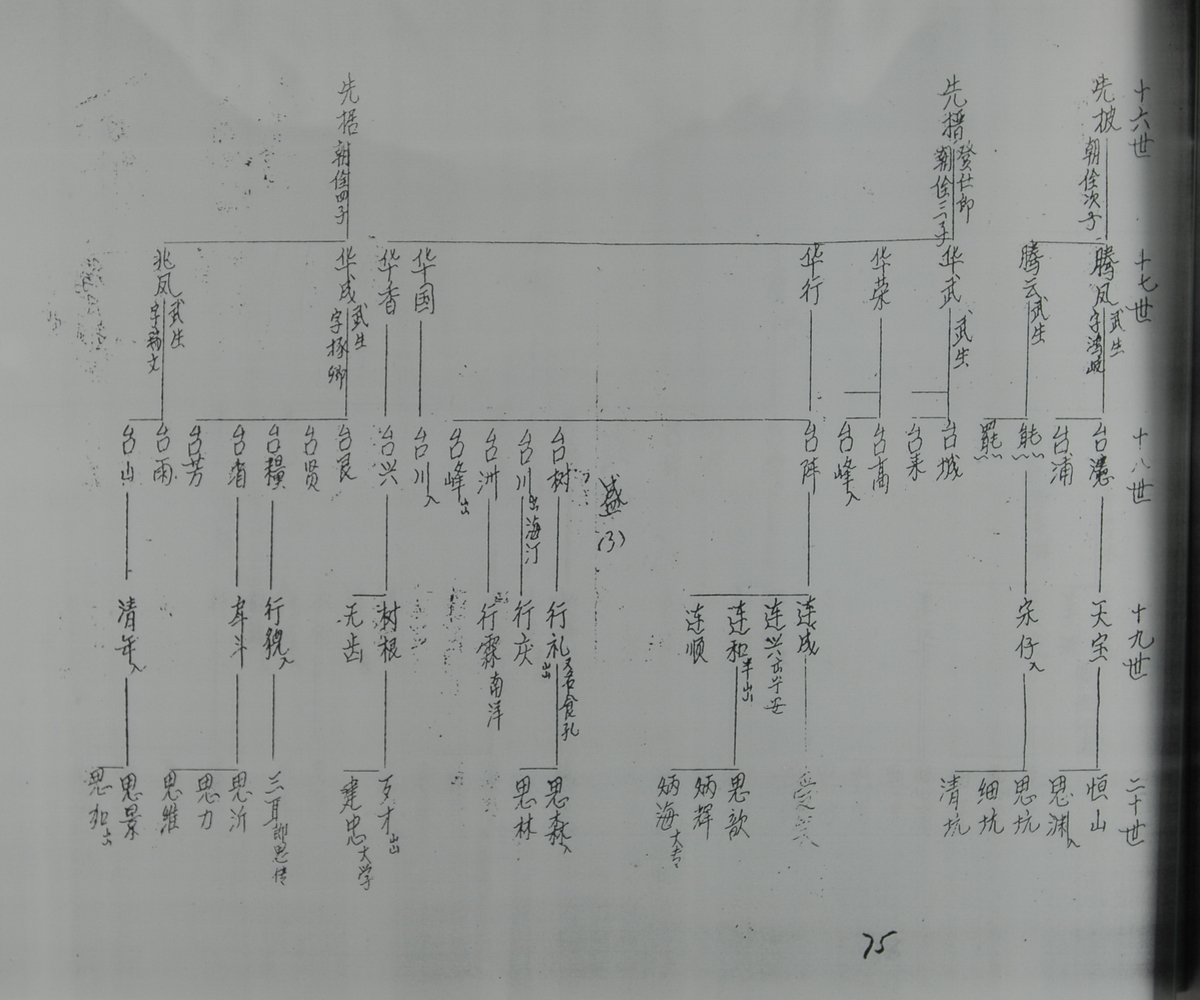 十六世
先披 朝佺次子
先搢 登仕郎 朝佺三子
先据 朝佺四子
十七世
腾凤 武生
腾云 武生
华武 武生
华荣
华行
华国
华香
华成 武生 字琢卿
兆凤 武生
十八世
台濃
台浦
熊
罷
台城
台禾
台高
台峰 入
台阵
盛(3)
台树
台川 出海汀
台洲
台峰 出
台川 入
台兴
台良
台贤
台穓
台省
台芳
台雨
台山
十九世
天宝
宋仔 入
连成
连兴
连和
连顺
行礼 出 又名食孔
行庆
行霖 南洋
树根
无齿
行貌 入
车斗
清年 入
二十世
恒山
思渊 入
思坑
细坑
清坑
爱美
思歆
炳辉
炳海 大专
思森 入
思林
歹才 出
建忠 大学
三耳
思沂
思力
思维
思景
思加 出
75